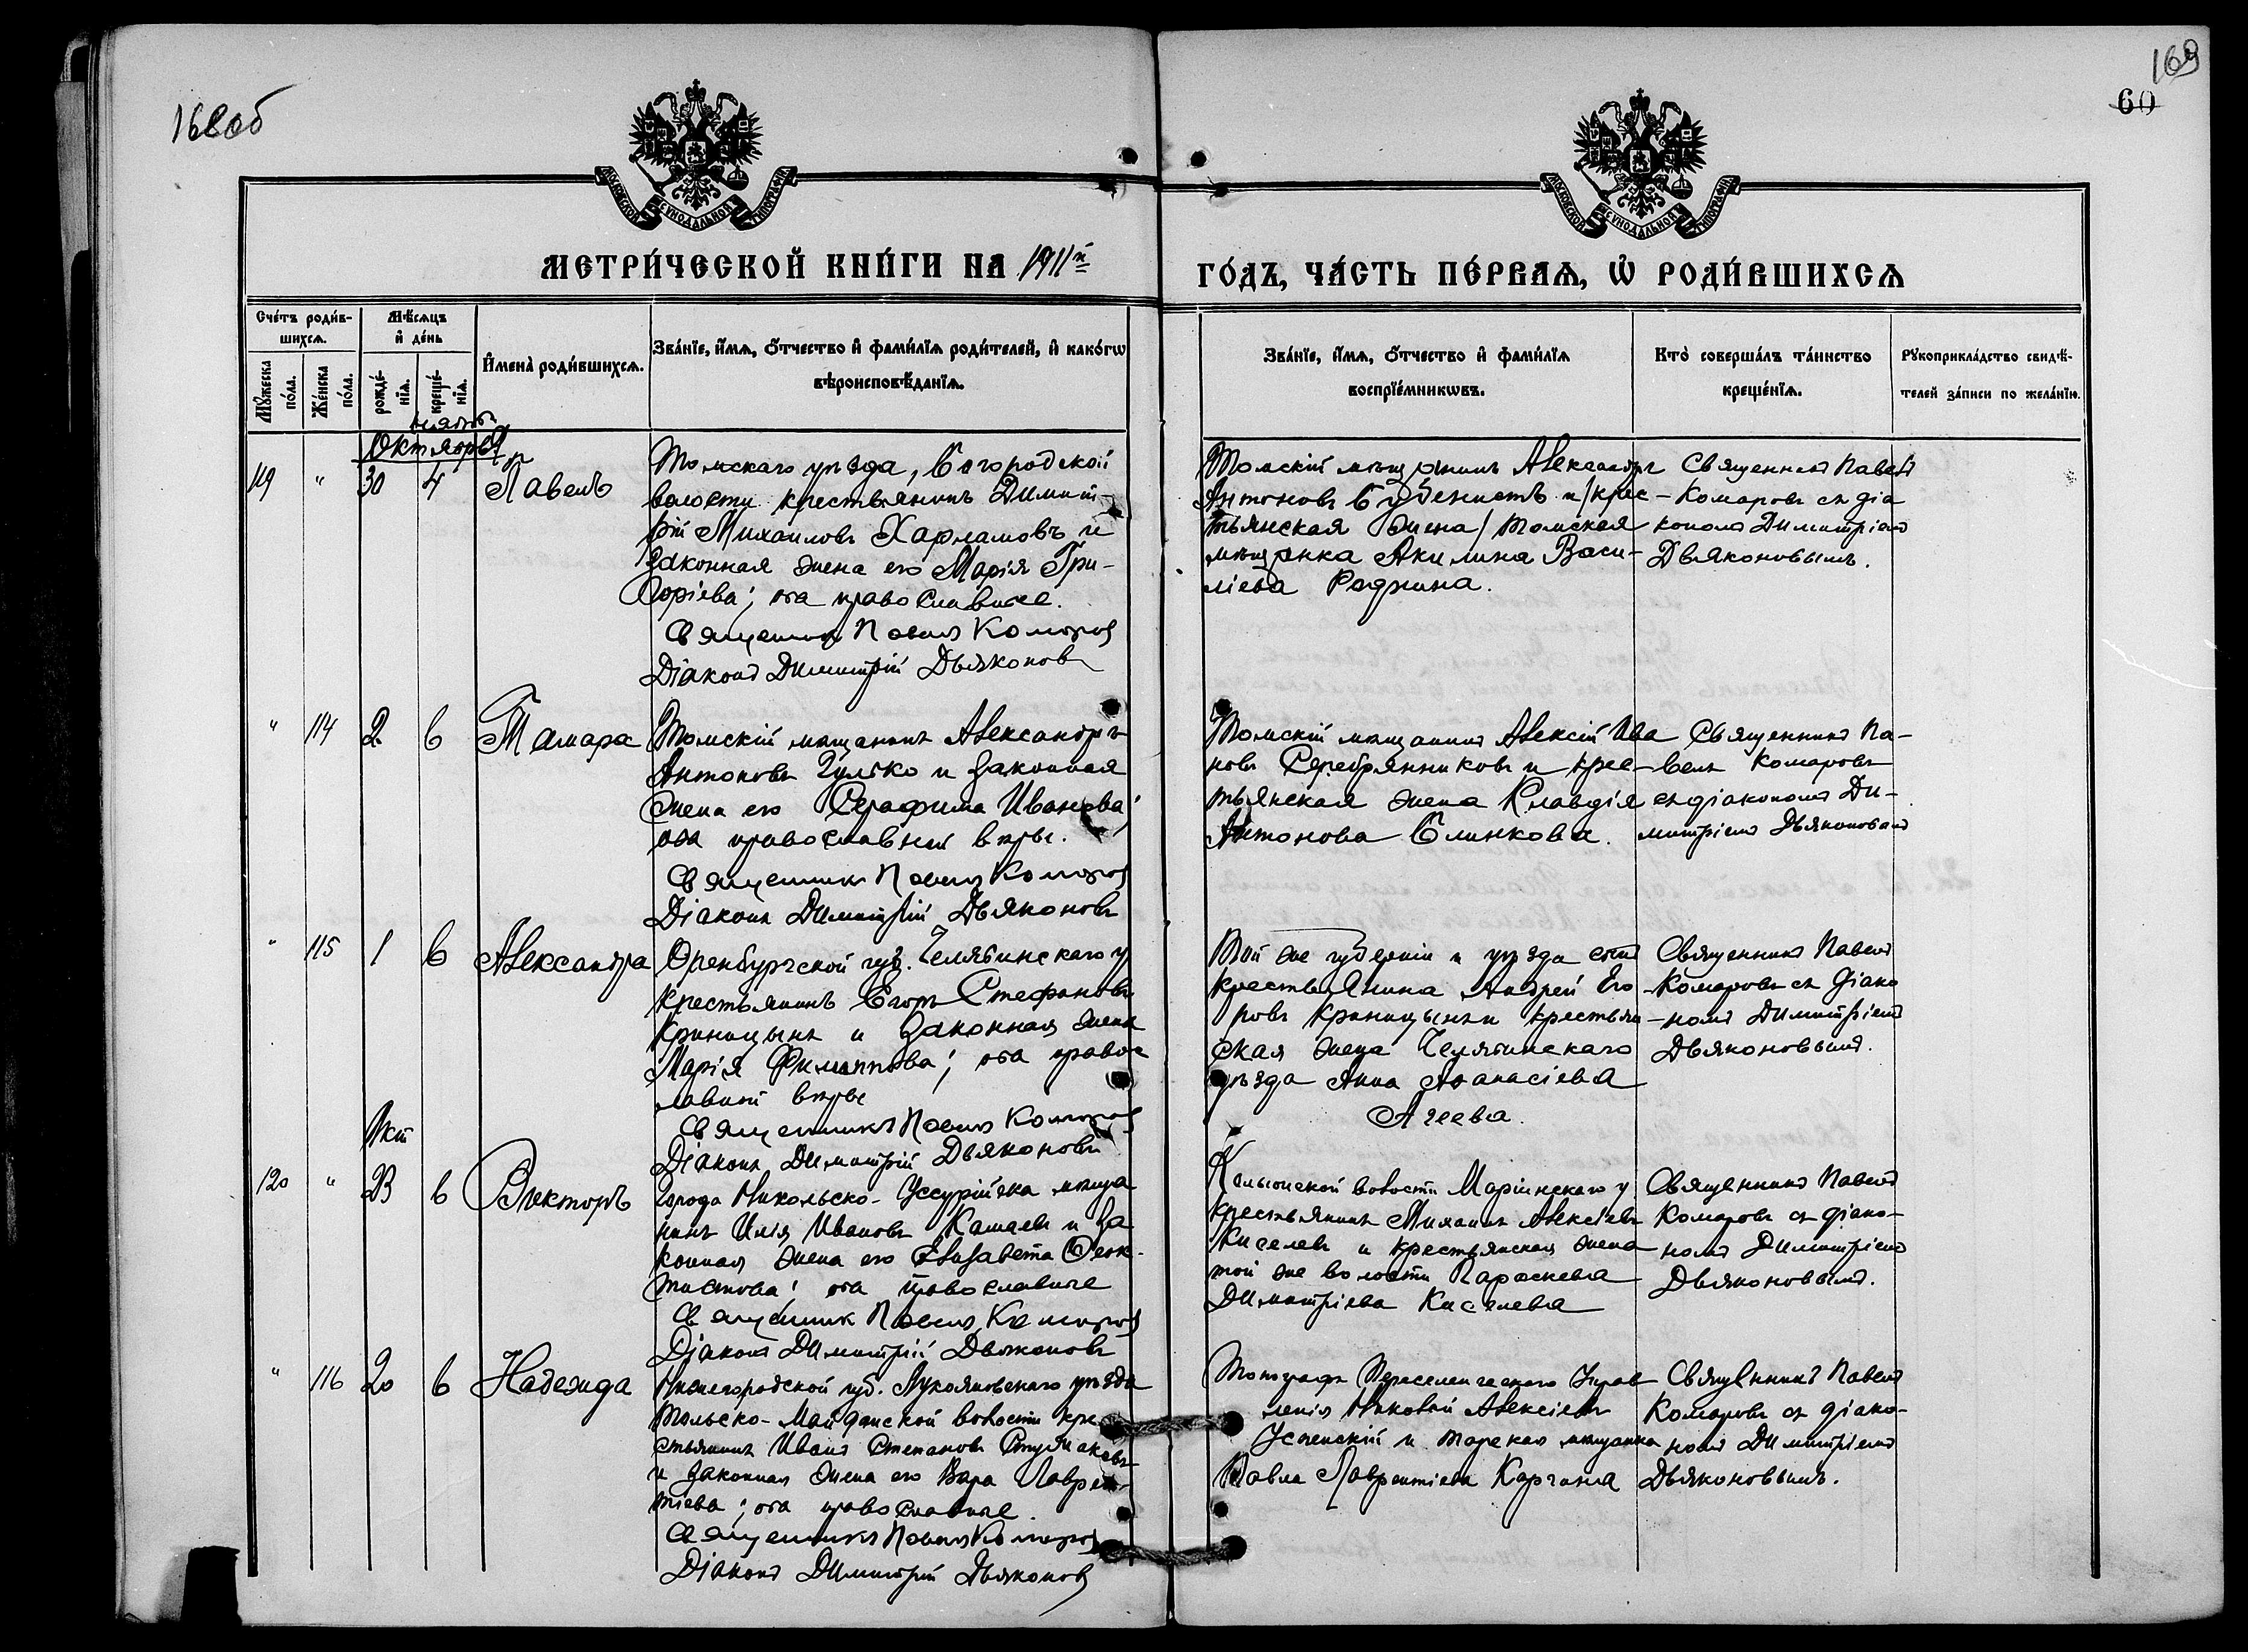 168об
169
60
МОСКОВСКОЙ СУНОДАЛЬНОЙ ТИПОГРАФІИ
МОСКОВСКОЙ СУНОДАЛЬНОЙ ТИПОГРАФІИ
МЕТРИ́ЧЕСКОЙ КНИ́ГИ НА 1911й
ГО́ДЪ, ЧА́СТЬ ПЕ́РВАѦ, Ѡ҆ РОДИ́ВШИХСѦ
Сче́тъ роди́в-
шихсѧ.
Мꙋ́жеска по́ла.
Же́нска по́ла.
Мѣ́сѧцъ
и҆ де́нь
рожде́-
нїѧ.
креще́-
нїѧ.
И҆мена̀ роди́вшихсѧ.
Зва́нїе, и҆́мѧ, о҆́тчество и҆ фами́лїѧ роди́телей, и҆ како́гѡ
вѣроисповѣ́данїѧ.
Зва́нїе, и҆́мѧ, о҆́тчество и҆ фами́лїѧ
воспрїе́мникѡвъ.
Кто̀ соверша́лъ та́инство
креще́нїѧ.
Рꙋкоприкла́дство свидѣ́-
телей за́писи по жела́нїю.
Октября
Ноябрь
119 " 30 4 Павелъ
Томскаго уѣзда, Богородской
волости крестьянинъ Димит-
рій Михаиловъ Харламовъ и
законная жена его Марія Гри-
горіева; оба православные.
Священникъ Павелъ Комаровъ
Діаконъ Димитрій Дьяконовъ
Томскій мѣщанинъ Александръ
Антоновъ и/крес-
тьянская жена/томская
мѣщанка Акилина Васи-
ліева Роднина.
Священникъ Павелъ
Комаровъ съ діа
кономъ Димитріемъ
Дьяконовымъ.
" 114 2 6 Тамара
Томскій мѣщанинъ Александръ
Антоновъ Гулько и законная
жена его Серафима Иванова;
оба православной вѣры.
Священникъ Павелъ Комаровъ
Діаконъ Димитрій Дьяконовъ
Томскій мѣщанинъ Алексій Ива
новъ Серебрянниковъ и крес-
тьянская жена Клавдія
Антонова Блинкова.
Священникъ Па-
велъ Комаровъ
съ діакономъ Ди-
митріемъ Дьяконовымъ
" 115 1 6 Александра
Оренбургской губ. Челябинскаго у
крестьянинъ Егоръ Стефановъ
Криницынъ и законная жена
Марія Филиппова; оба правос
лавной вѣры
Священникъ Павелъ Комаровъ
Діаконъ Димитрій Дьяконовъ
Той же губерніи и уѣзда сынъ
крестьянина Андрей Его
ровъ Криницынъ и крестьян
ская жена Челябинскаго
уѣзда Анна Аѳанасіева
Агеева.
Священникъ Павелъ
Комаровъ съ діако
номъ Димитріемъ
Дьяконовымъ.
Окт
120 " 23 6 Викторъ
города Никольско-Уссурійска мѣща
нинъ Илія Ивановъ Кашаевъ и за
конная жена его Елизавета Ѳеок-
тистова; оба православные
Священник Павелъ Комаровъ
Діаконъ Димитрій Дьяконовъ
волости Маріинскаго у
крестьянинъ Михаилъ Алексіевъ
Киселевъ и крестьянская жена
той же волости Параскева
Димитріева Киселева
Священникъ Павелъ
Комаровъ съ діако-
номъ Димитріемъ
Дьяконовымъ.
" 116 20 6 Надежда
Нижегородской губ. Лукояновскаго уѣзда
Тольско-Майданской волости кре
стьянинъ Иванъ Степановъ
и законная жена его Вѣра Лаврен-
тіева; оба православные.
Священникъ Павелъ Комаровъ
Діаконъ Димитрій Дьяконовъ
Топографъ Переселенческаго Управ
ленія Алексіевъ
Успенскій и мѣщанка
Павла Лаврентіева
Священникъ Павелъ
Комаровъ съ діако-
номъ Димитріемъ
Дьяконовымъ.